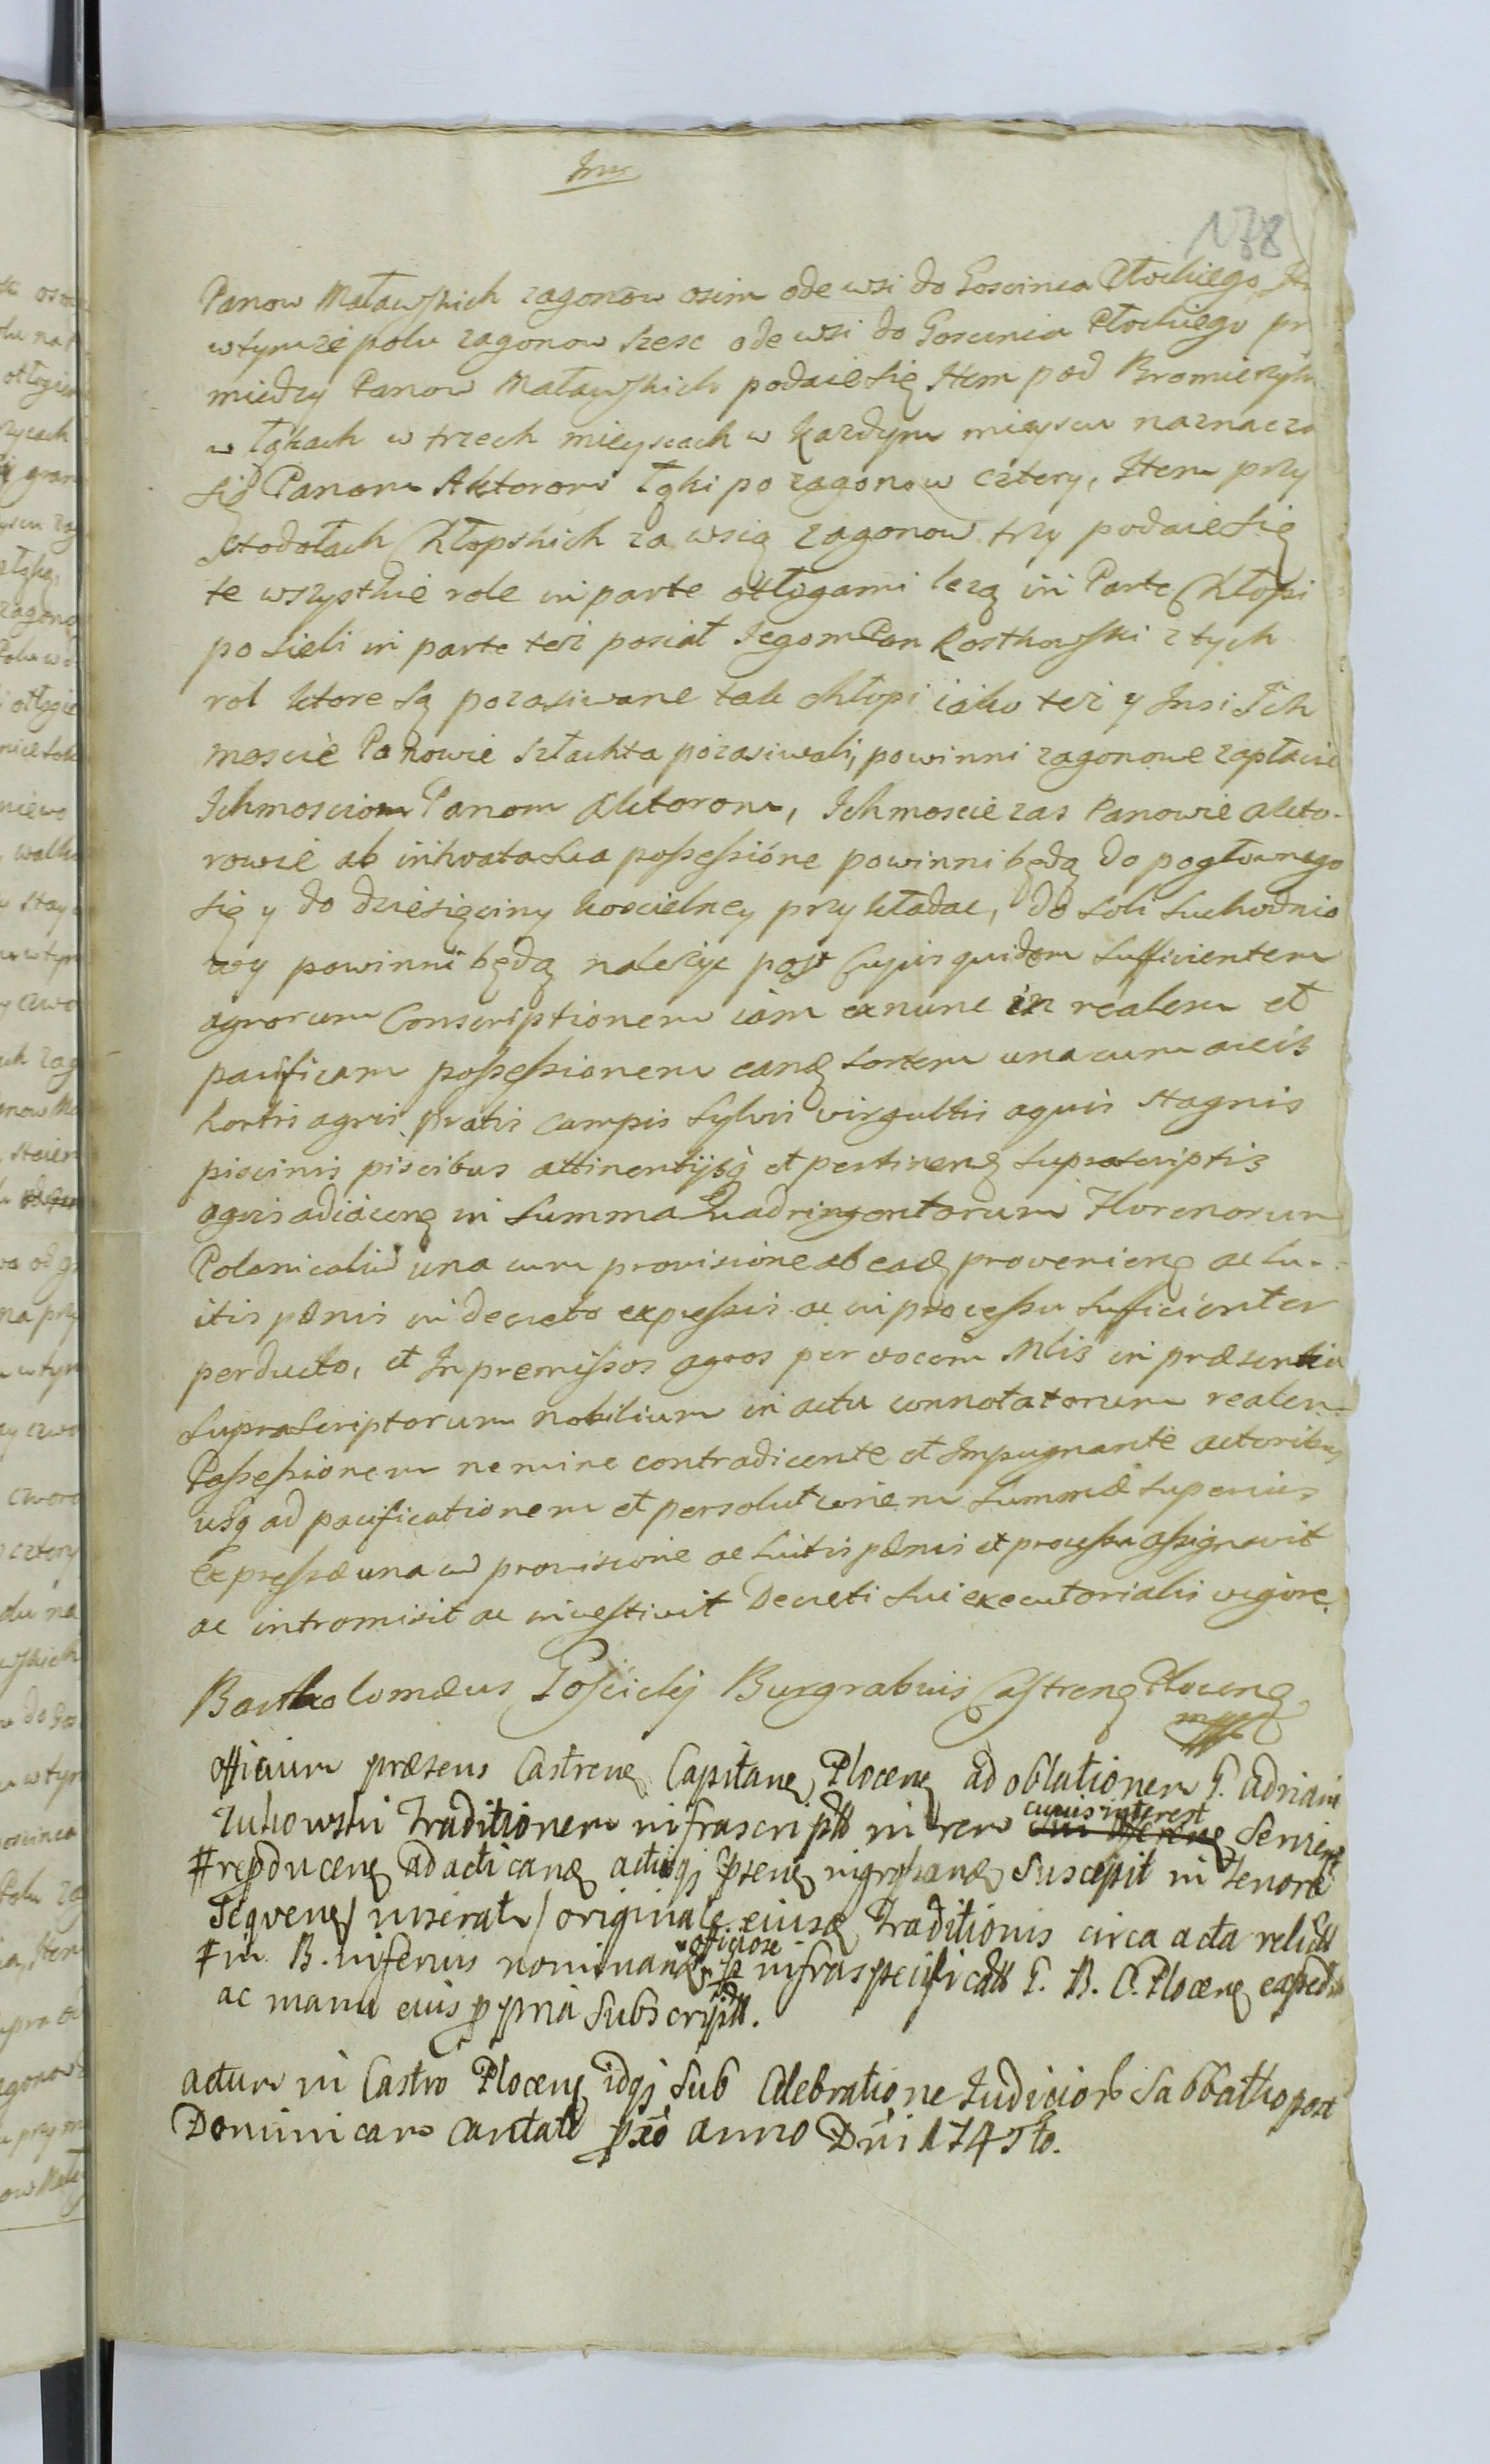 Inr
178
Panow Maławskich zagonow osim ode wsi do Goscinca Płockiego It
w tymze polu zagonow szesc ode wsi do Goscinca Płockiego pr
miedzy Panow Maławskich podaie się Item pod Bromierzyk
w łąkach w trzech mieyscach w kazdym mieyscu naznacza
się Panom Aktorom łąki po zagonow cztery, Item przy
Stodołach Chłopskich za wsią zagonow trzy podaie się
te wszystkie role in parte odłogami lezą in Parte Chłopi
posieli in parte tez posiał Jegom Pan Kostkowski z tych
rol ktore są pozasiwane tak chłopi iako tez y Insi Ich
moscie Panowie szlachta pozasiwali, powinni zagonowe zapłacic
Ichmosciom Panom Aktorom, Ichmoscie zas Panowie Akto-
rowie ab inhvata sua possessione powinni będą do pogłownego
się y do dziesięciny koscielney przykładac, do soli suchodnio
wy powinni będą nalezyc post cujus quidem sufficientem
agrorum Conscriptionem iam exnunc in realem et
pacificam possessionem eandę sortem una cum aeeis
hortis agris pratis campis sylvis virgultis aquis stagnis
piscinis piscibus attinentijsq et pertinenę suprascriptis
agris adiacenę in summa Quadringentorum Florenorum
Polonicaliu una cum provisione ab eadę provenienę ac lu-
itis pænis in decreto expressis ac in processu sufficienter
perducto, et In premissos agros per vocem Mlis in præsentia
suprascriptorum nobilium in actu connotatorum realem
Possessionem nemine contradicente et Impugnante actoribus
usq ad pacificationem et persolutionem summæ superius
Expressæ una cu provisione ac luitis pænis et processu assignavit
ac intromisit ac investivit Decreti sui executorialis vigore.
Bartholomæus Gościcky Burgrabius Castrenę Plocenę
mpp
Officium præsens Castrenę Capitanę Plocenę ad oblationem G. Adriani
Zukowski Traditionem infrascriptt in rem cuius interest Servien
# reproducenę ad acticandę actisqj psenę ingrossandę suscepit in tenore
Seqvenę / inserat / originale eiusdę Traditionis circa acta relictt
# in B. inferius nominandę officiose p infraspecificatt G. B. C. Plocenę exped
ac manu eius ppria subscriptt.
Actum in Castro Plocenę idqj sub Celebratione Judiciorb Sabbatho post
Dominicam Cantate pxo anno Dni 1745to.